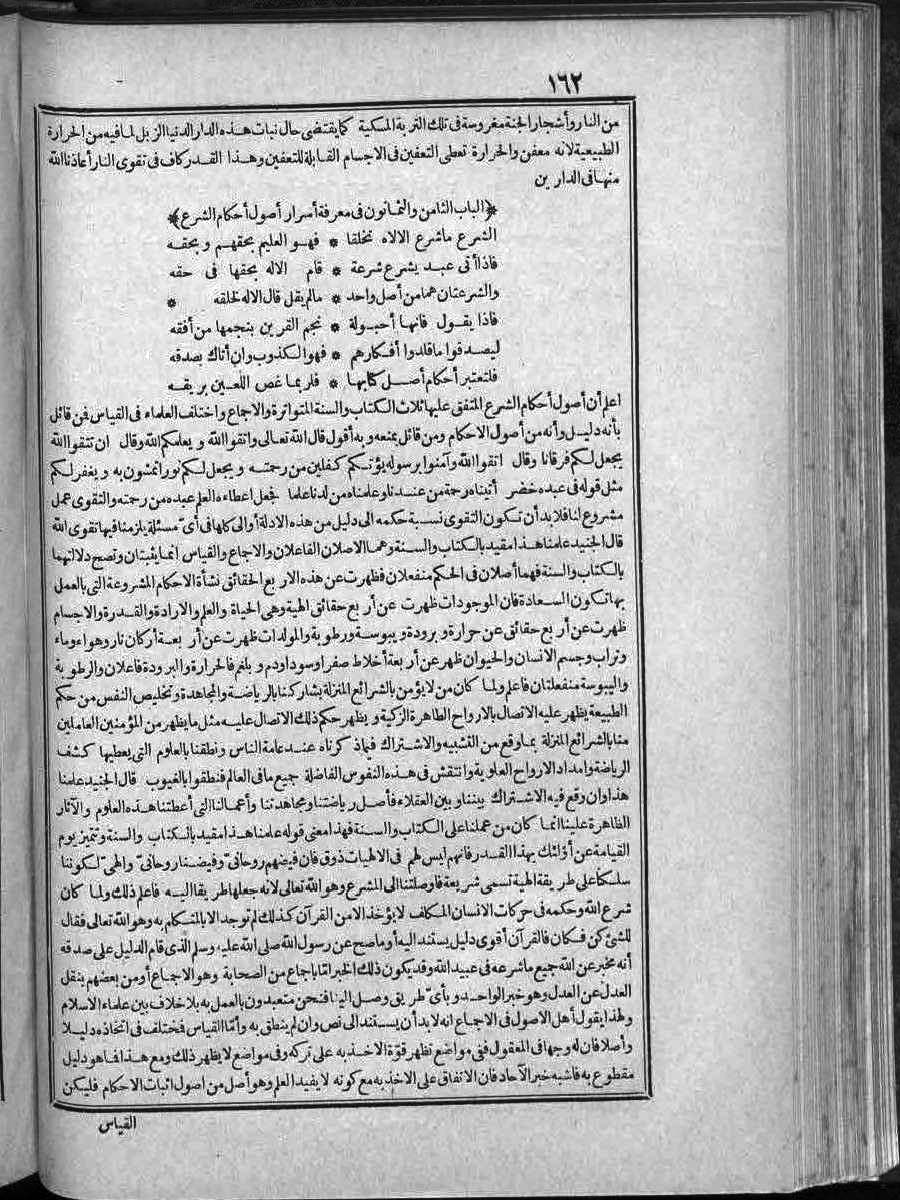 ١٦٢
من النار وأشجار الجنة مغروسة فى تلك التربة المسكية كما يقتضى حال نبات هذه الدار الدنيا الزبل لما فيه من الحرارة
الطبيعية لانه معفن والحرارة تعطى التعفين فى الاجسام القابلة للتعفين وهذا القدر كاف فى تقوى النار أعاذنا الله
منها فى الدارين
﴿الباب الثامن والثمانون فى معرفة أسرار أصول أحكام الشرع﴾
الشرع ما شرع الالاه تخلقا * فهو العليم بحقهم وبحقه
فاذا أتى عبد يشرع شرعة * قام الاله بحقها فى حقه
والشرعتان هما من أصل واحد * مالم يقل قال الاله لخلقه *
فاذا يقول فانها أحبولة * نجم القرين بنجمها من أفقه
ليصدقوا ما قلدوا أفكارهم * فهو الكذوب وان أتاك بصدقه
فلتعتبر أحكام أصل كتابها * فلربما غص اللعين بريقه
اعلم أن أصول أحكام الشرع المتفق عليها ثلاث الكتاب والسنة المتواترة والاجماع واختلف العلماء فى القياس فمن قائل
بأنه دليل وأنه من أصول الاحكام ومن قائل بمنعه وبه أقول قال الله تعالى واتقوا الله ويعلمكم الله وقال ان تتقوا الله
يجعل لكم فرقانا وقال اتقوا الله وآمنوا برسوله يؤتكم كفلين من رحمته ويجعل لكم نورا تمشون به ويغفر لكم
مثل قوله فى عبده خضر آتيناه رحمة من عندنا وعلمناه من لدنا علما فجعل اعطاءه العلم عبده من رحمته والتقوى عمل
مشروع لنا فلا بد أن تكون التقوى نسبة حكمه الى دليل من هذه الادلة أو الى كلها فى أى مسئلة يلزمنا فيها تقوى الله
قال الجنيد علمنا هذا مقيد بالكتاب والسنة وهما الاصلان الفاعلان والاجماع والقياس انما يثبتان وتصح دلالتهما
بالكتاب والسنة فهما أصلان فى الحكم منفعلان فظهرت عن هذه الاربع الحقائق نشأة الاحكام المشروعة التى بالعمل
بها تكون السعادة فان الموجودات ظهرت عن أربع حقائق الهية وهى الحياة والعلم والارادة والقدرة والاجسام
ظهرت عن أربع حقائق عن حرارة وبرودة ويبوسة ورطوبة والمولدات ظهرت عن أربعة أركان نار وهواء وماء
وتراب وجسم الانسان والحيوان ظهر عن أربعة أخلاط صفرا وسودا ودم وبلغم فالحرارة والبرودة فاعلان والرطوبة
واليبوسة منفعلتان فاعلم ولما كان من لا يؤمن بالشرائع المنزلة يشاركنا بالرياضة والمجاهدة وتخليص النفس من حكم
الطبيعة يظهر عليه الاتصال بالارواح الطاهرة الزكية ويظهر حكم ذلك الاتصال عليه مثل ما يظهر من المؤمنين العاملين
منا بالشرائع المنزلة بما وقع من التشبيه والاشتراك فيما ذكرناه عند عامة الناس ونطقنا بالعلوم التى يعطيها كشف
الرياضة وامداد الارواح العلوية وانتقش فى هذه النفوس الفاضلة جميع ما فى العالم فنطقوا بالغيوب قال الجنيد علمنا
هذا وان وقع فيه الاشتراك بيننا وبين العقلاء فأصل رياضتنا ومجاهدتنا وأعمالنا التى أعطتنا هذه العلوم والآثار
الظاهرة علينا انما كان من عملنا على الكتاب والسنة فهذا معنى قوله علمنا هذا مقيد بالكتاب والسنة وتتميز يوم
القيامة عن أولئك بهذا القدر فانهم ليس لهم فى الالهيات ذوق فان فيضهم روحانى وفيضنا روحانى والهى لكوننا
سلكنا على طريقة الهية تسمى شريعة فاوصلتنا الى المشرع وهو الله تعالى لانه جعلها طريقا اليه فاعلم ذلك ولما كان
شرع الله وحكمه فى حركات الانسان المكلف لا يؤخذ الا من القرآن كذلك لم توجد الا بالمتكلم به وهو الله تعالى فقال
للشئ كن فكان فالقرآن أقوى دليل يستند اليه أو ما صح عن رسول الله صلى الله عليه وسلم الذى قام الدليل على صدقه
أنه مخبر عن الله جميع ما شرعه فى عبيد الله وقد يكون ذلك الخبر اما باجماع من الصحابة وهو الاجماع أو من بعضهم بنقل
العدل عن العدل وهو خبر الواحد وبأى طريق وصل الينا فنحن متعبدون بالعمل به بلا خلاف بين علماء الاسلام
ولهذا يقول أهل الاصول فى الاجماع انه لا بد أن يستند الى نص وان لم ينطق به وأما القياس فمختلف فى اتخاذه دليلا
وأصلا فان له وجها فى المعقول ففى مواضع تظهر قوة الاخذ به على تركه وفى مواضع لا يظهر ذلك ومع هذا فما هو دليل
مقطوع به فاشبه خبر الآحاد فان الاتفاق على الاخذ به مع كونه لا يفيد العلم وهو أصل من اصول اثبات الاحكام فليكن
القياس